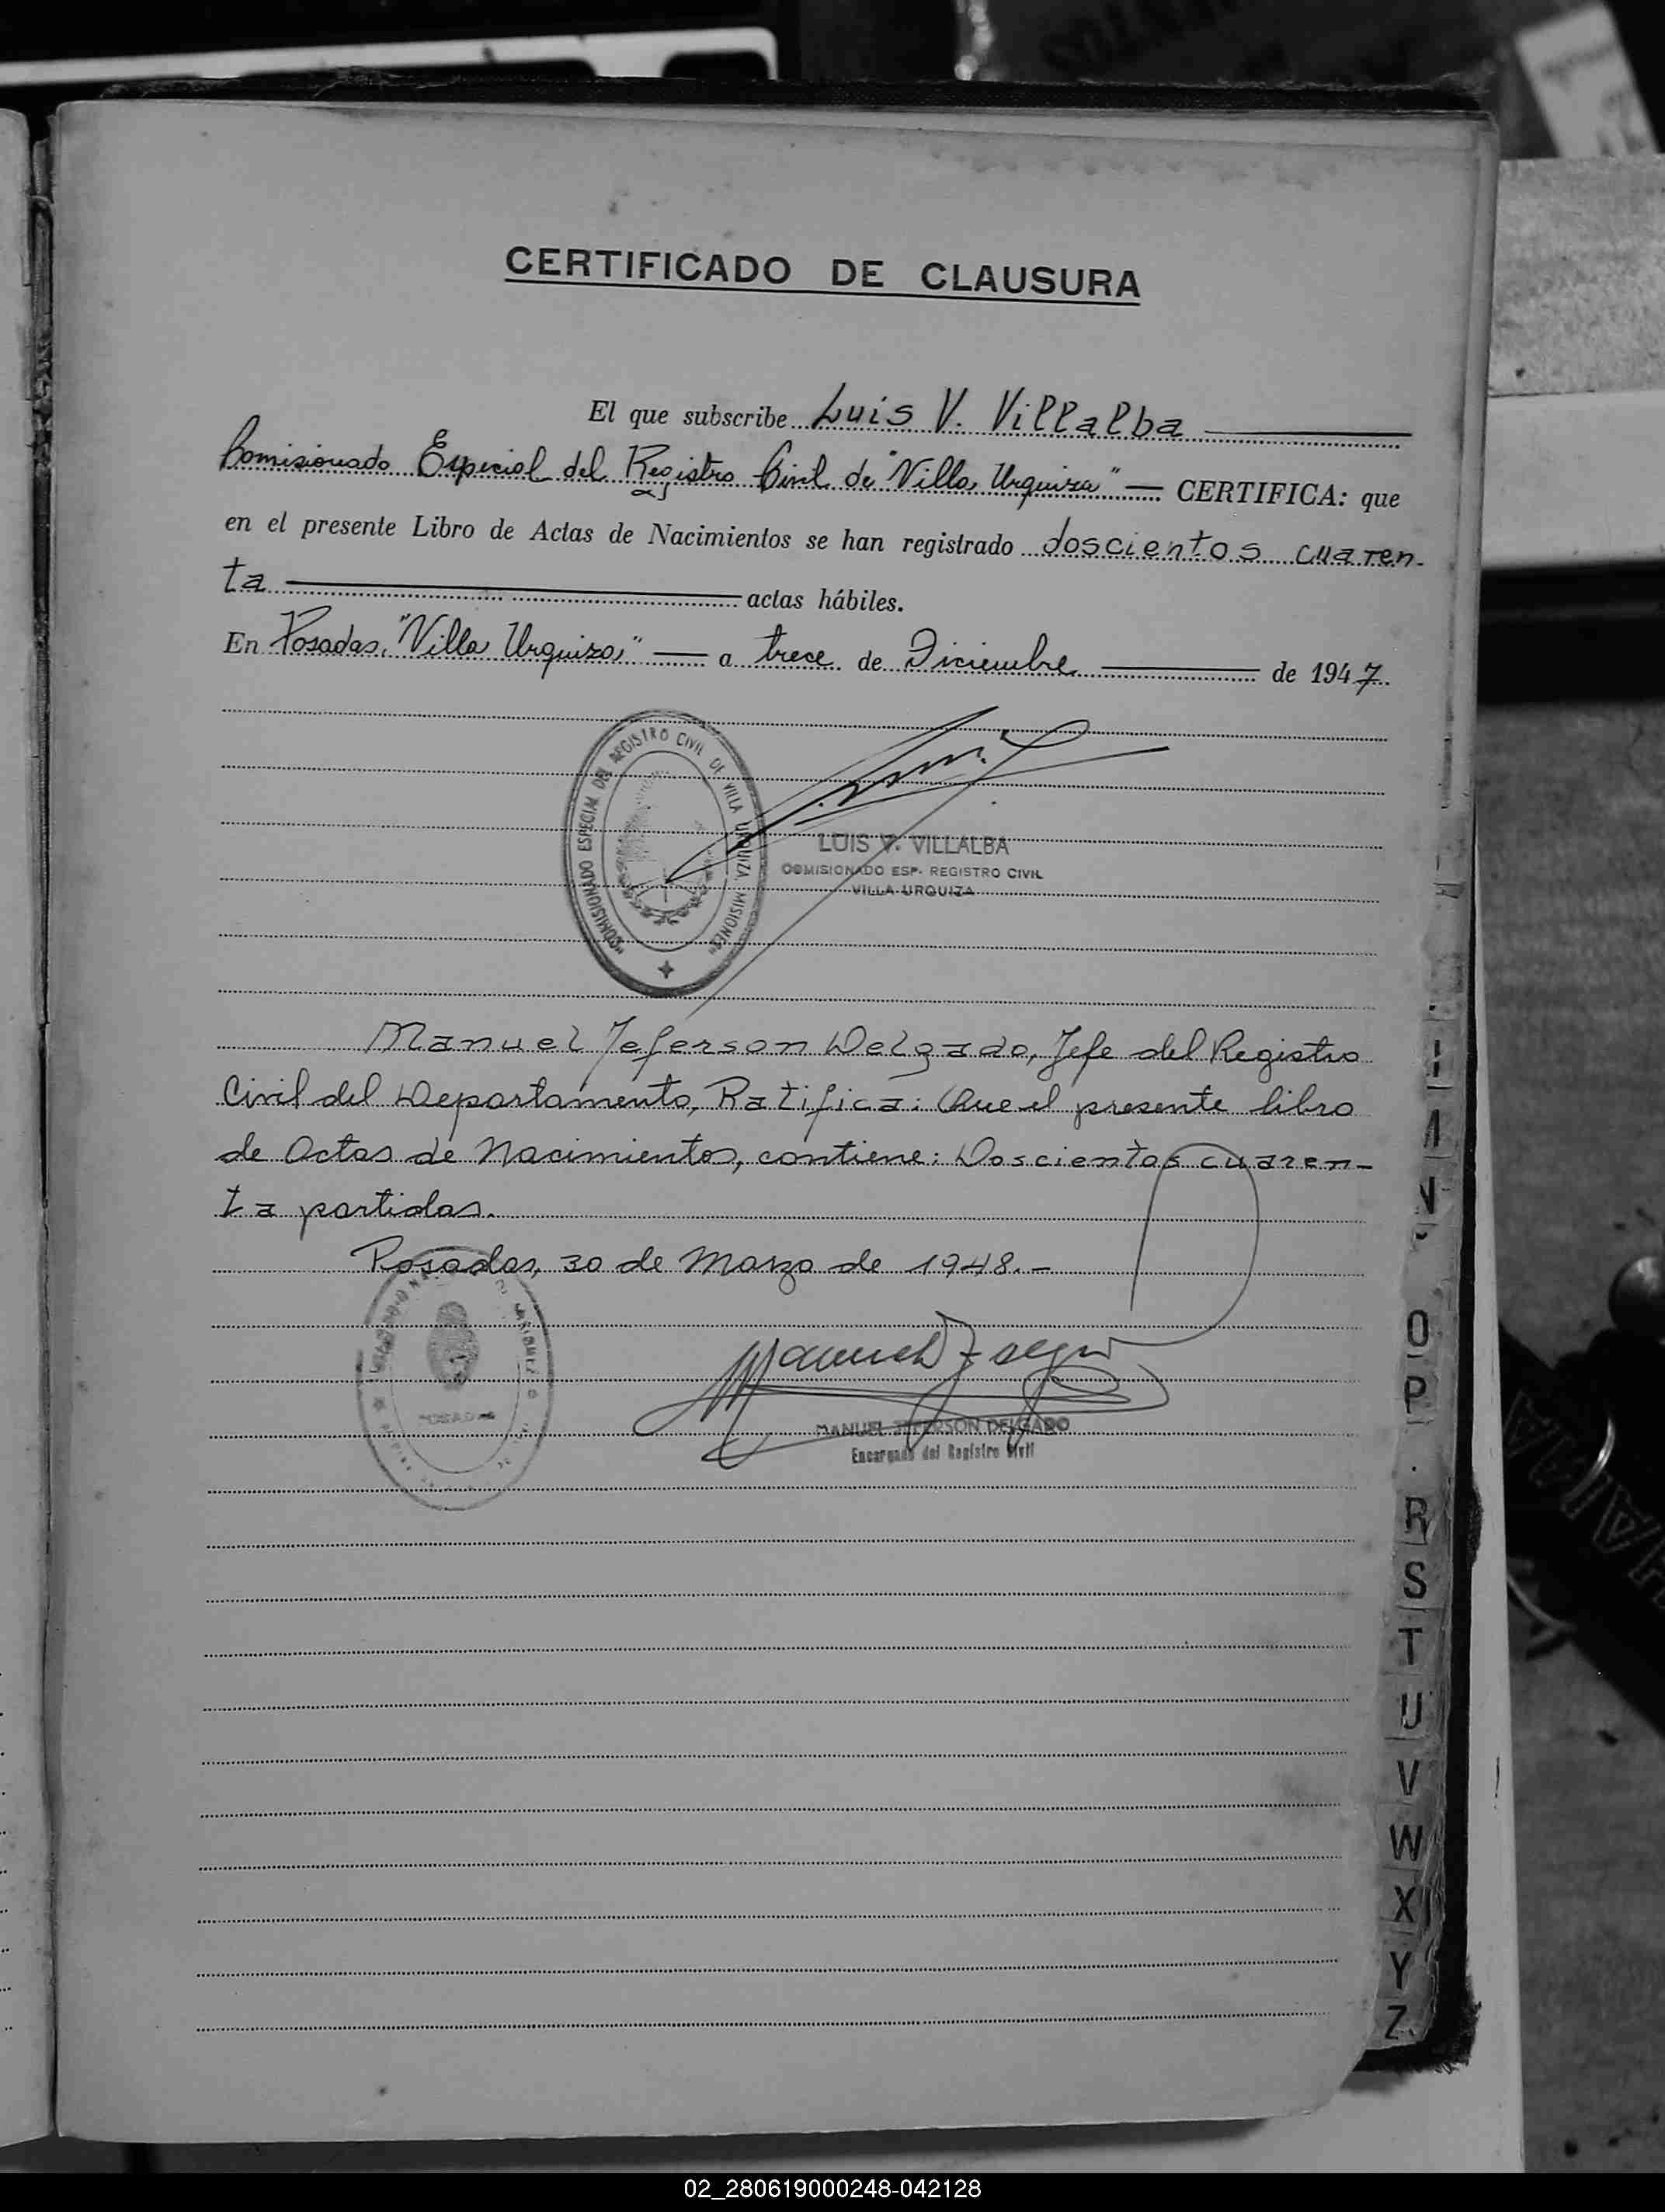 CERTIFICADO DE CLAUSURA
El que subscribe Luis V. Villalba
Comisionado Especial del Registro Civil de "Villa Urquiza" — CERTIFICA: que
en el presente Libro de Actas de Nacimientos se han registrado doscientos cuaren-
ta actas hábiles.
En Posadas, "Villa Urquiza" — a trece de Diciembre de 1947
COMISIONADO ESPECIAL DEL REGISTRO CIVIL DE VILLA URQUIZA MISIONES
LUIS V. VILLALBA
COMISIONADO ESP. REGISTRO CIVIL
VILLA URQUIZA
Manuel Jeferson Delgado, Jefe del Registro
Civil del Departamento, Ratifica: Que el presente libro
de Actas de Nacimientos, contiene: Doscientas cuaren-
ta partidas.
Posadas, 30 de Marzo de 1948.-
POSADAS
MANUEL JEFERSON DELGADO
Encargado del Registro Civil
O
P
R
S
T
U
V
W
X
Y
Z
02_280619000248-042128